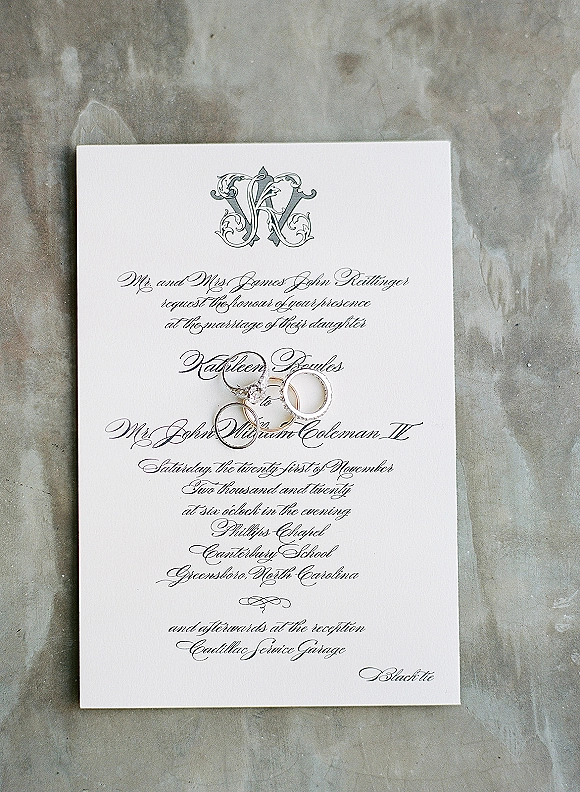 Mr. and Mrs. James John Reittinger
request the honour of your presence
at the marriage of their daughter
Kathleen Bowles
to
Mr. John William Coleman IV
Saturday, the twenty-first of November
Two thousand and twenty
at six o'clock in the evening
Phillips Chapel
Canterbury School
Greensboro, North Carolina
and afterwards at the reception
Cadillac Service Garage
Black tie